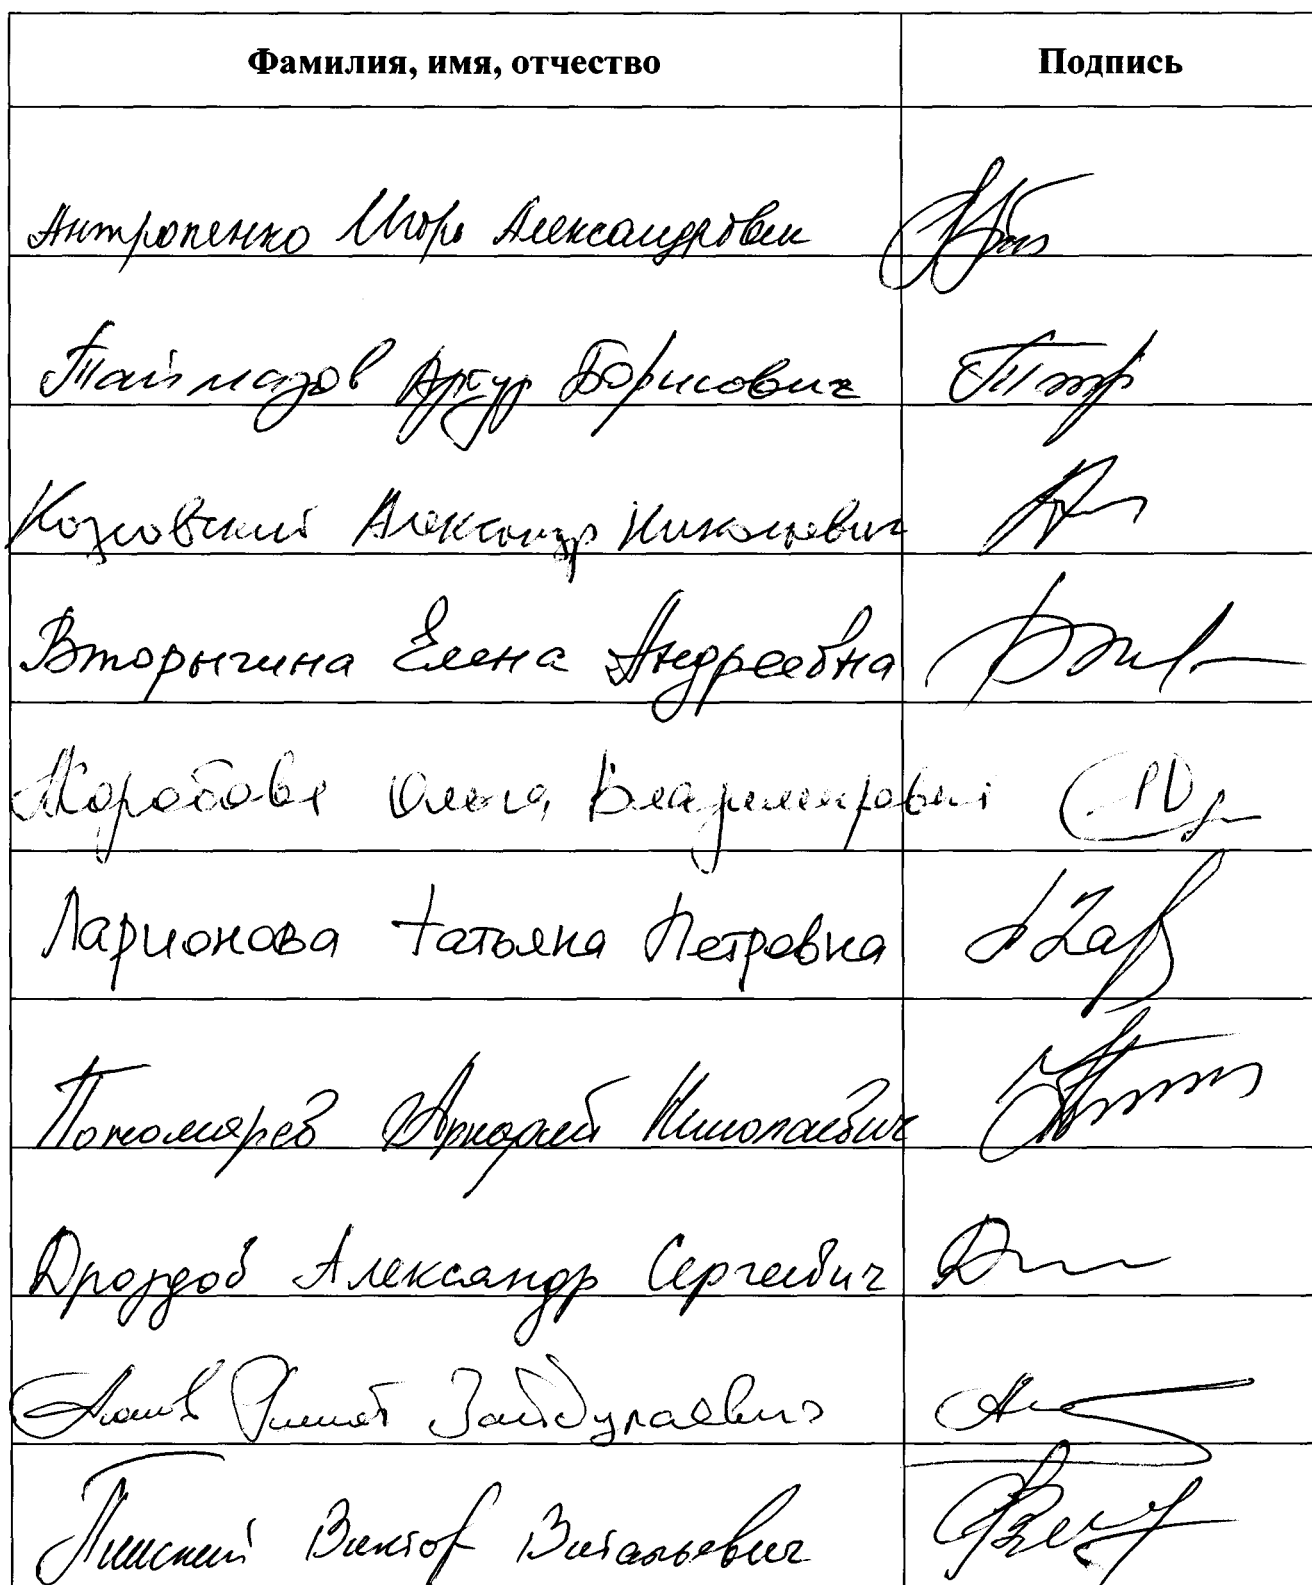 Фамилия, имя, отчество Подпись
Антропенко Игорь Александрович
Таймазов Артур Борисович
Козловский Александр Николаевич
Вторыгина Елена Андреевна
Коробова Ольга Владимировна
Ларионова Татьяна Петровна
Пономарев Аркадий Николаевич
Дроздов Александр Сергеевич
Аляев Зайдулаевич
Пинский Виктор Витальевич